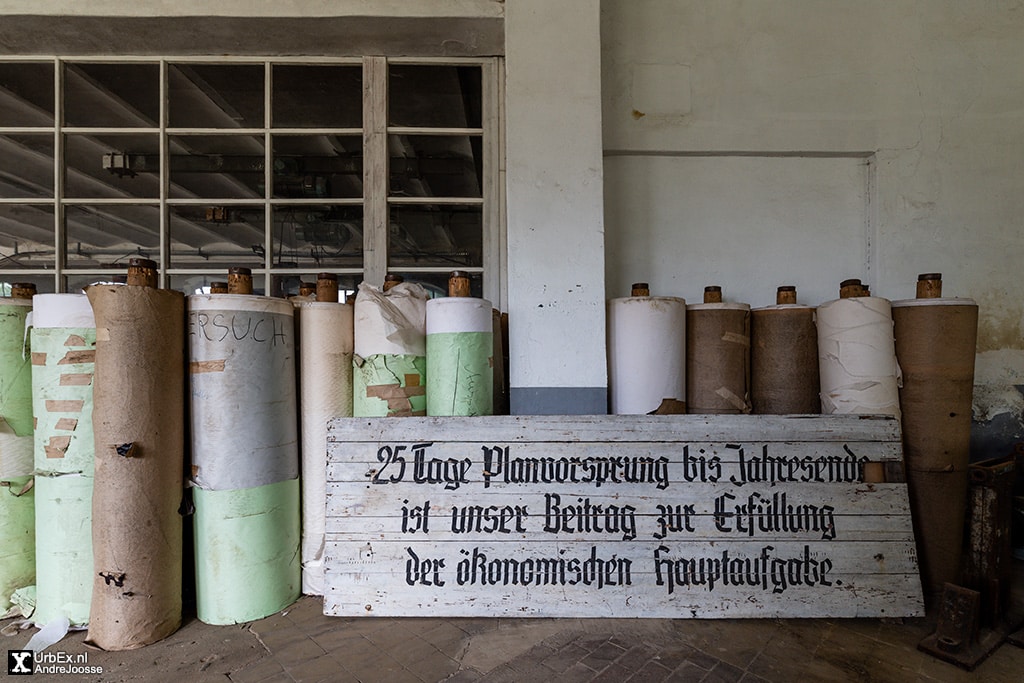 ERSUCH
25 Tage Planvorsprung bis Jahresende
ist unser Beitrag zur Erfüllung
der ökonomischen Hauptaufgabe.
X UrbEx.nl
AndreJoosse